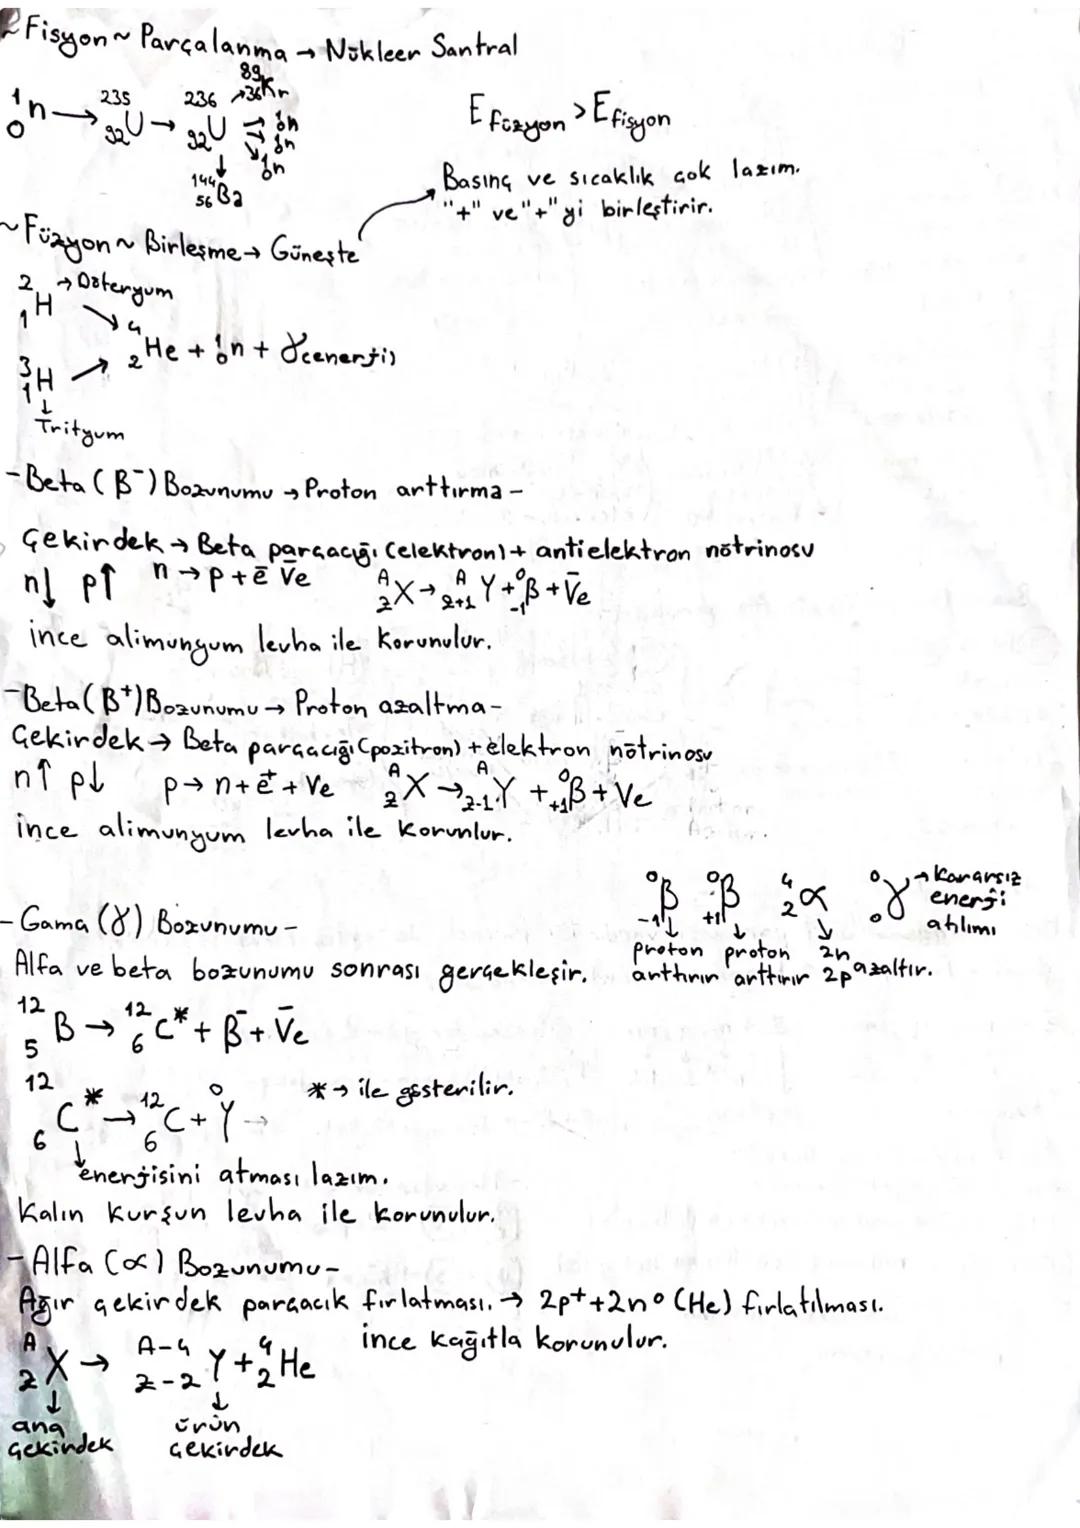 ~Fisyon~ Parçalanma → Nükleer Santral
¹₀n → ²³⁵₉₂U → ²³⁶₉₂U ↗ ⁸⁹₃₆Kr
→ ¹₀n
→ ¹₀n
↘ ¹₀n
↓
¹⁴⁴₅₆Ba
E füzyon > E fisyon
Basınç ve sıcaklık çok lazım.
"+" ve "+" yi birleştirir.
~Füzyon~ Birleşme → Güneşte
²₁H → Döteryum
↘ ⁴₂He + ¹₀n + γ(enerji)
³₁H ↗
↓
Trityum
-Beta (β⁻) Bozunumu → Proton arttırma-
Çekirdek → Beta parçacığı (elektron) + antielektron nötrinosu
n↓ p↑ n → p + e⁻ ν̄e ᴬ_Z X → ᴬ_Z+1 Y + ⁰₋₁β + ν̄e
ince alimunyum levha ile korunulur.
-Beta (β⁺) Bozunumu → Proton azaltma-
Çekirdek → Beta parçacığı (pozitron) + elektron nötrinosu
n↑ p↓ p → n + e⁺ + νe ᴬ_Z X → ᴬ_Z-1 Y + ⁰₊₁β + νe
ince alimunyum levha ile korunlur.
⁰₋₁β ⁰₊₁β ⁴₂α ⁰₀γ → Kararsız enerji atılımı
↓ ↓ ↓
proton proton 2n
arttırır arttırır 2p azaltır.
-Gama (γ) Bozunumu-
Alfa ve beta bozunumu sonrası gerçekleşir.
¹²₅B → ¹²₆C* + β⁻ + ν̄e
¹²₆C* → ¹²₆C + ⁰γ →
* → ile gösterilir.
↓
enerjisini atması lazım.
Kalın kurşun levha ile korunulur.
-Alfa (α) Bozunumu-
Ağır çekirdek parçacık fırlatması. → 2p⁺+2n⁰ (He) fırlatılması.
ince kağıtla korunulur.
ᴬ_Z X → ᴬ⁻⁴_Z-2 Y + ⁴₂He
↓ ↓
ana ürün
çekirdek çekirdek